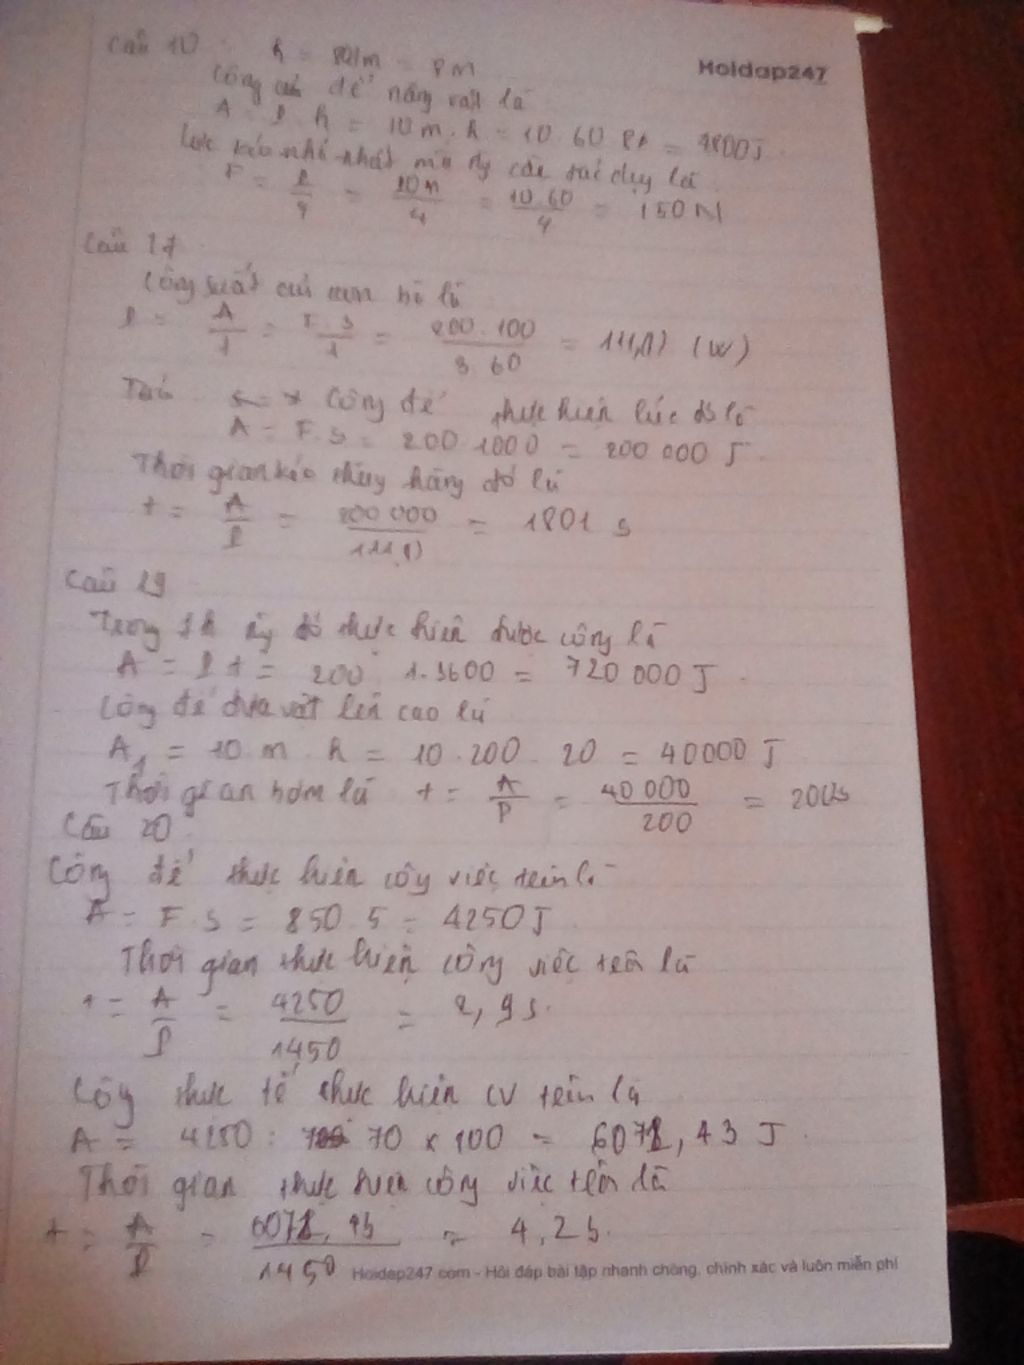 Câu 10
Hoidap247
Công để nâng vật là
A = P . h = 10 m . h = 10 . 60 = 4800J
Lực kéo nhỏ nhất cần tác dụng là
F = P/4 = 10m/4 = 10.60/4 = 150 N
Câu 17
Công suất của con bò là
P = A/t = F.s/t = 200.100/3.60 = (W)
Công để thực hiện lúc đó là
A = F.s = 200 1000 = 200 000 J
Thời gian kéo thùng hàng đó là
t = A/P = 200 000/ = 1801 s
Câu 19
Trong 1h thực hiện được công là
A = P t = 200 1.3600 = 720 000 J
Công để đưa vật lên cao là
A1 = 10 m . h = 10 . 200 . 20 = 40000 J
Thời gian bơm là t = A/P = 40 000/200 = 200s
Câu 20
Công để thực hiện công việc trên là
A = F.s = 850.5 = 4250J
Thời gian thực hiện công việc trên là
t = A/P = 4250/1450 = 2,9s.
Công thực tế thực hiện CV trên là
A = 4250 : 70 x 100 = 6071,43 J
Thời gian thực hiện công việc trên là
t = A/P = 6071,43/1450 = 4,2s.
Hoidap247.com - Hỏi đáp bài tập nhanh chóng, chính xác và luôn miễn phí